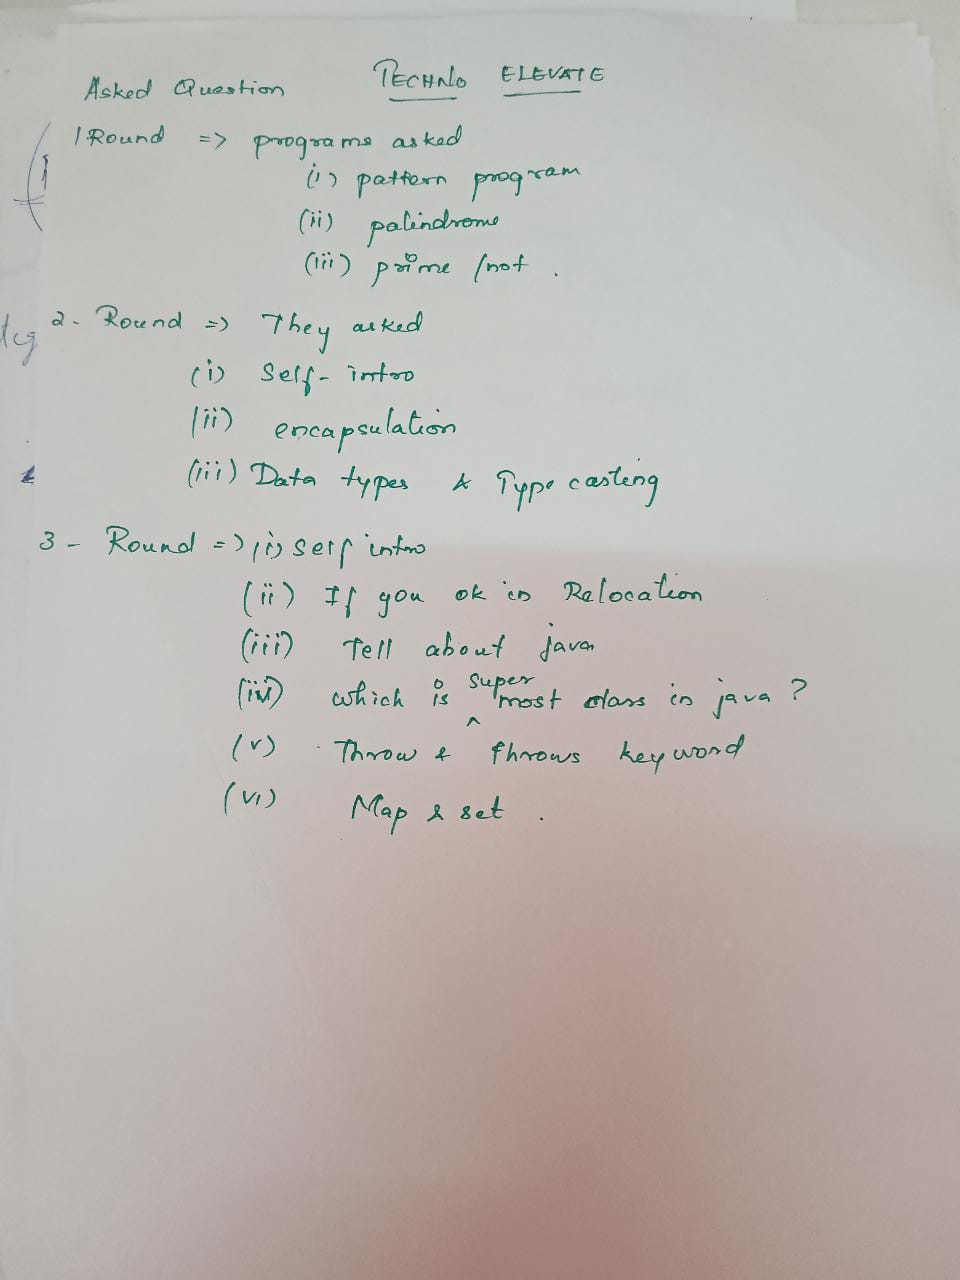 Asked Question TECHNO ELEVATE
1 Round => programs asked
(i) pattern program
(ii) palindrome
(iii) prime /not .
2 - Round => They asked
(i) Self - intro
(ii) encapsulation
(iii) Data types & Type casting
3 - Round => (i) self intro
(ii) If you ok in Relocation
(iii) Tell about java
(iv) which is super most class in java ?
(v) Throw & throws keyword
(vi) Map & set .